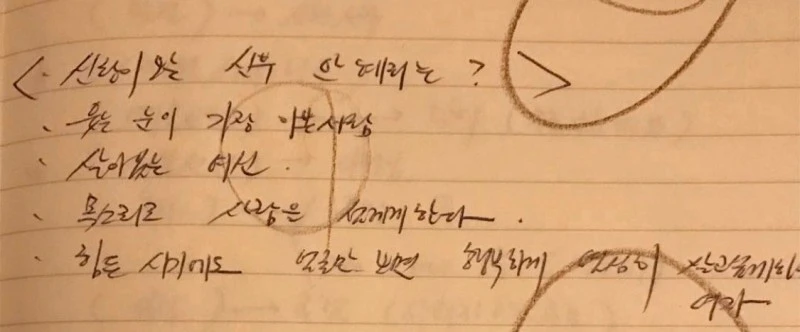 <. 신랑이 보는 신부 안혜리는 ? >
. 웃는 눈이 가장 이쁜사람
. 살아있는 여신.
. 목소리로 사람을 설레게한다.
. 힘든 시기에도 얼굴만 보면 행복하게 열심히
여자